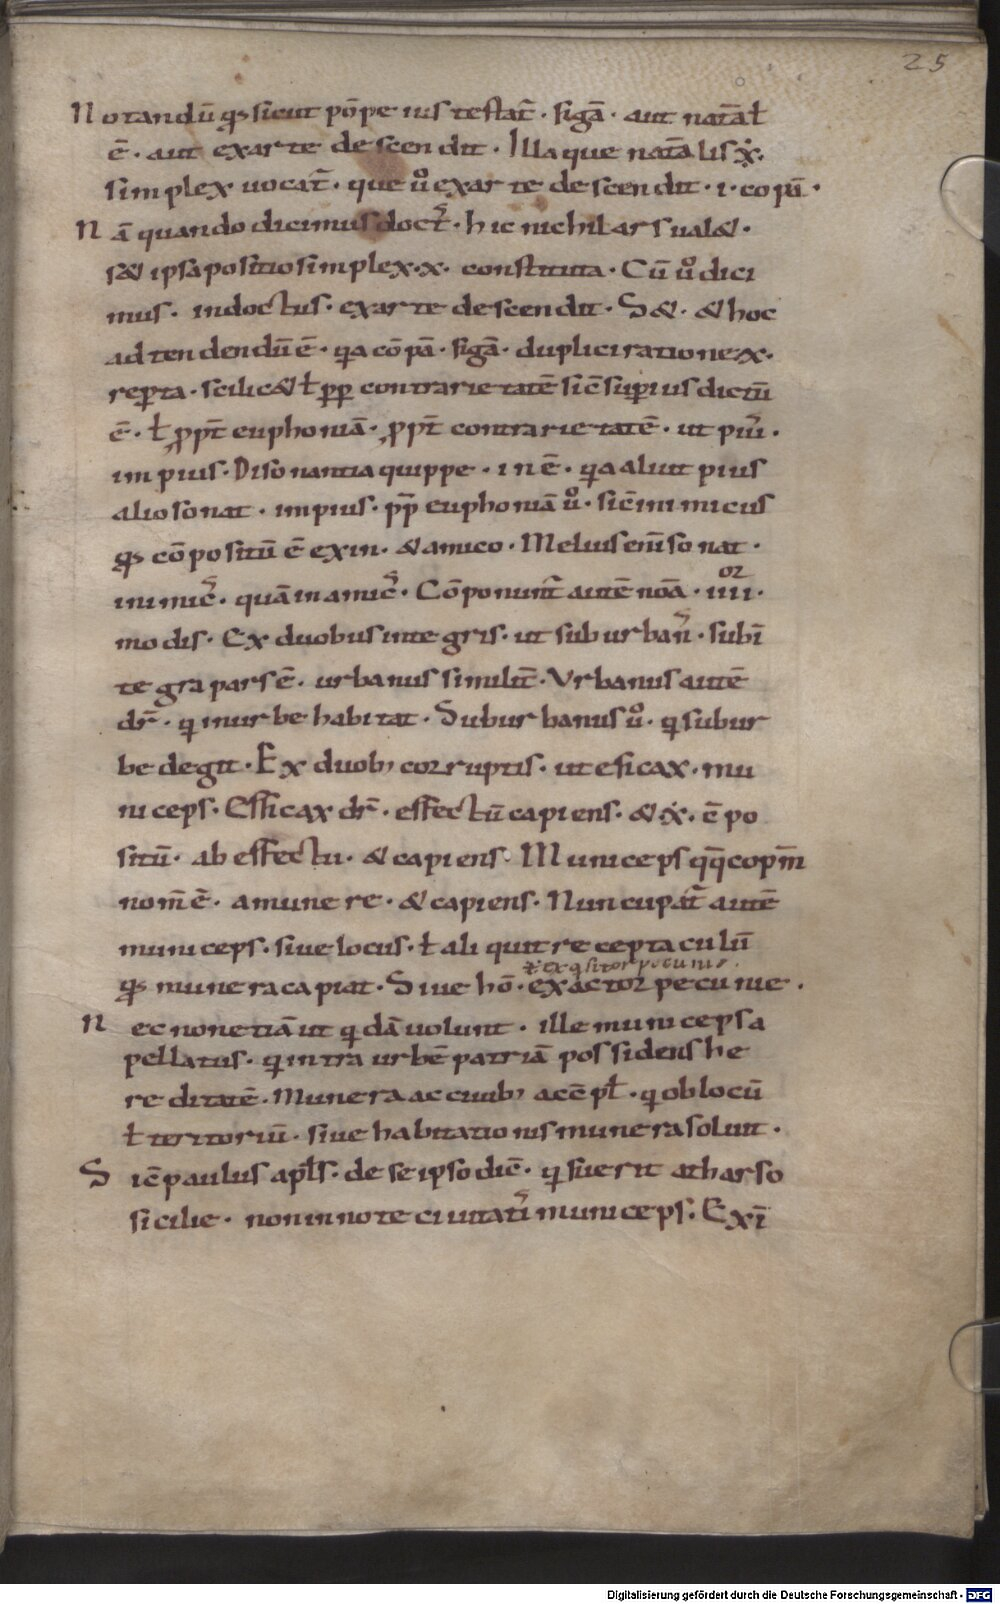 25
Notandū qđ sicut pōpeius testat̄ · sigā · aut natāł
ē · aut ex arte descendit · Illa que natālis ·x̄·
simplex uocat̄ · que ů ex arte descendit · i · copī ·
Nā quando dicimus doct᷒ · hic nichil ars ual& ·
s& ipsa positio simplex ·x· constituta · Cū ů dici
mus · indoctus · ex arte descendit · S& · & hoc
adtendendū ē · q̄a cōpā · sigā · duplici ratione ·x·
rep̄ta · scilic& ł p̄p contrarietatē sic̄ sup̄ius dictū
ē · ł p̄p̄t euphoniā · p̄p̄t contrarietatē · ut pīu ·
impius · Disonantia quippe · in ē · q̄a aliut pius
alio sonat · impius · p̄p euphoniā ů · sic̄ inimicus
qđ cōpositū ē ex in · & amico · Melius enī sonat ·
inimic᷒ · quā inamic᷒ · Cōponunt̄ autē noā · iiii ·
or
modis · Ex duobus integris · ut suburban᷒ · sub ī
tegra pars ē · urbanus similit̄ · Vrbanus autē
dr̄ · q̄ in urbe habitat · Suburbanus ů · q̄ subur
be degit · Ex duob; corruptis · ut eficax · mu
niceps · Efficax dr̄ · effectū capiens · & ·x̄· ē po
sitū · ab effectu · & capiens · Municeps q̄q̄ copm̄
nom̄ ē · a munere · & capiens · Nuncupat̄ autē
municeps · siue locus · ł aliquit receptaculū
ł exq̄sitor pecunie ·
qđ munera capiat · Siue hō · exactor pecunie ·
Nec non etiā ut q̄dā uolunt · ille municeps a
pellatus · q̄ intra urbē patriā possidens he
reditatē · Munera ac cuib; acc̄pł · q̄ ob locū
ł territoriū · siue habitationis munera soluit ·
Sic̄ paulus apłs · de se ipso dic̄ · q̄ fuerit a tharso
sicilie · non innote ciuitati᷒ municeps · Ex ī
Digitalisierung gefördert durch die Deutsche Forschungsgemeinschaft - DFG